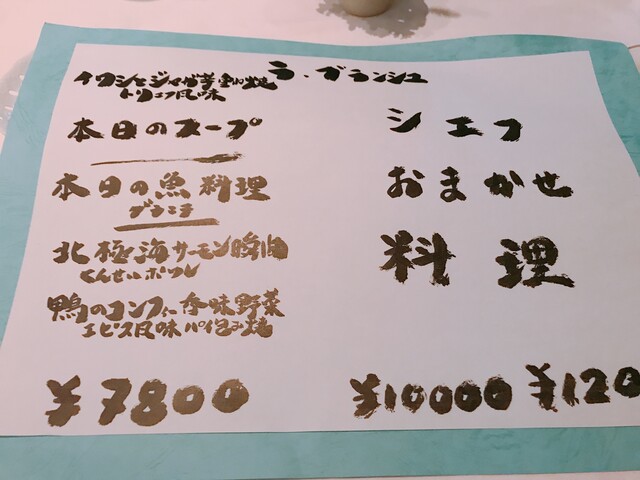 ラ・ブランシュ
イワシとジャガ芋重ね焼
トリュフ風味
本日のスープ
本日の魚料理
グラニテ
北極海サーモン瞬間
くんせいポワレ
鴨のコンフィー香味野菜
エピス風味パイ包み焼
¥7800
シェフ
おまかせ
料理
¥10000 ¥120